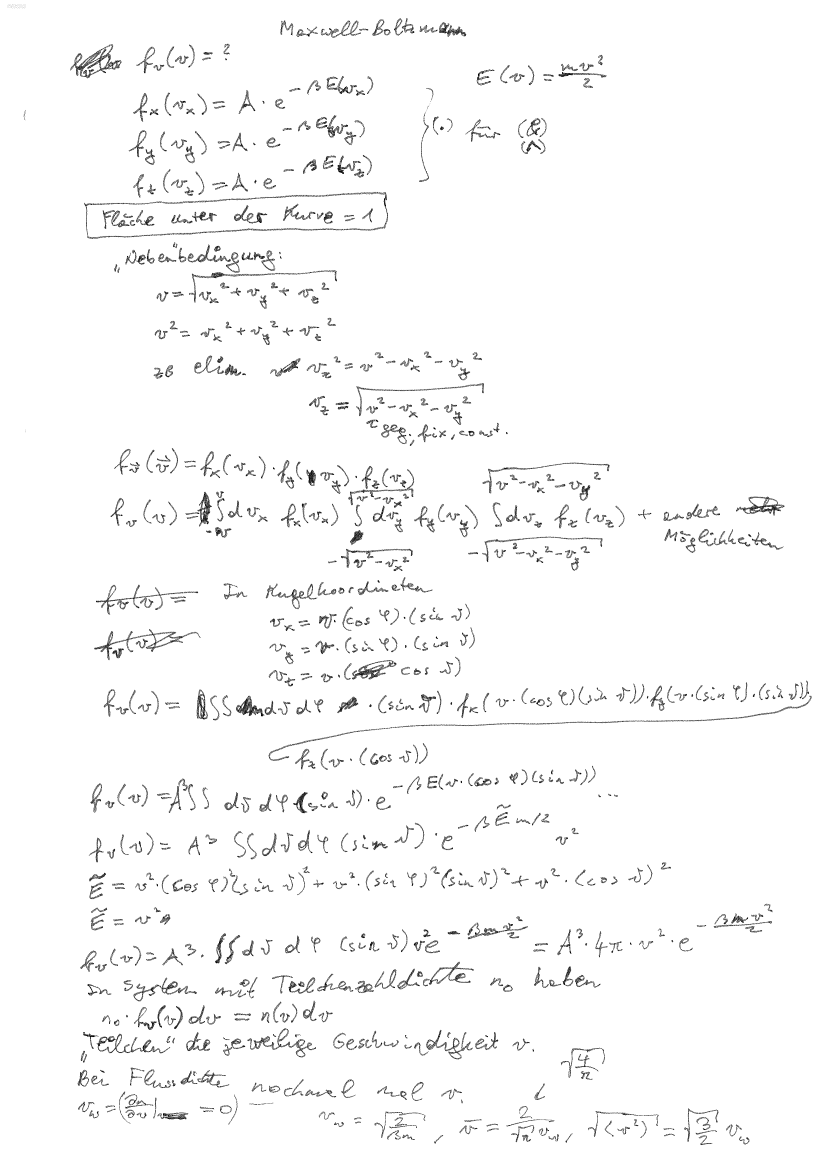 Maxwell-Boltzmann
f_v(v) = ?
E(v) = mv²/2
f_x(v_x) = A · e^(-βE(v_x))
f_y(v_y) = A · e^(-βE(v_y))
f_z(v_z) = A · e^(-βE(v_z))
} (·) für (&) (∧)
Fläche unter der Kurve = 1
„Neben"bedingung:
v = √(v_x² + v_y² + v_z²)
v² = v_x² + v_y² + v_z²
zB elim. v_z² = v² - v_x² - v_y²
v_z = √(v² - v_x² - v_y²)
geg., fix, const.
f_v⃗(v⃗) = f_x(v_x) · f_y(v_y) · f_z(v_z)
f_v(v) = ∫_{-v}^{v} dv_x f_x(v_x) ∫_{-√(v²-v_x²)}^{√(v²-v_x²)} dv_y f_y(v_y) ∫_{-√(v²-v_x²-v_y²)}^{√(v²-v_x²-v_y²)} dv_z f_z(v_z) + andere
Möglichkeiten
f_v(v) = In Kugelkoordinaten
v_x = v · (cos φ) · (sin ϑ)
f_v(v) = v_y = v · (sin φ) · (sin ϑ)
v_z = v · (cos ϑ)
f_v(v) = ∫∫ dϑ dφ · (sin ϑ) · f_x(v · (cos φ)(sin ϑ)) · f_y(v · (sin φ) · (sin ϑ)) ·
f_z(v · (cos ϑ))
f_v(v) = A³ ∫∫ dϑ dφ (sin ϑ) · e^(-βE(v · (cos φ)(sin ϑ))) ...
f_v(v) = A³ ∫∫ dϑ dφ (sin ϑ) · e^(-βẼm/2) v²
Ẽ = v² · (cos φ)²(sin ϑ)² + v² · (sin φ)²(sin ϑ)² + v² · (cos ϑ)²
Ẽ = v²
f_v(v) = A³ · ∫∫ dϑ dφ (sin ϑ) v² e^(-βmv²/2) = A³ · 4π · v² · e^(-βmv²/2)
In System mit Teilchenzahldichte n₀ haben
n₀ · f_v(v) dv = n(v) dv
„Teilchen" die jeweilige Geschwindigkeit v.
Bei Flussdichte nochmal mal v.
√(4/π)
v_w = (∂n/∂v| = 0) v_w = √(2/βm), v̄ = 2/√π v_w, √⟨v²⟩ = √(3/2) v_w